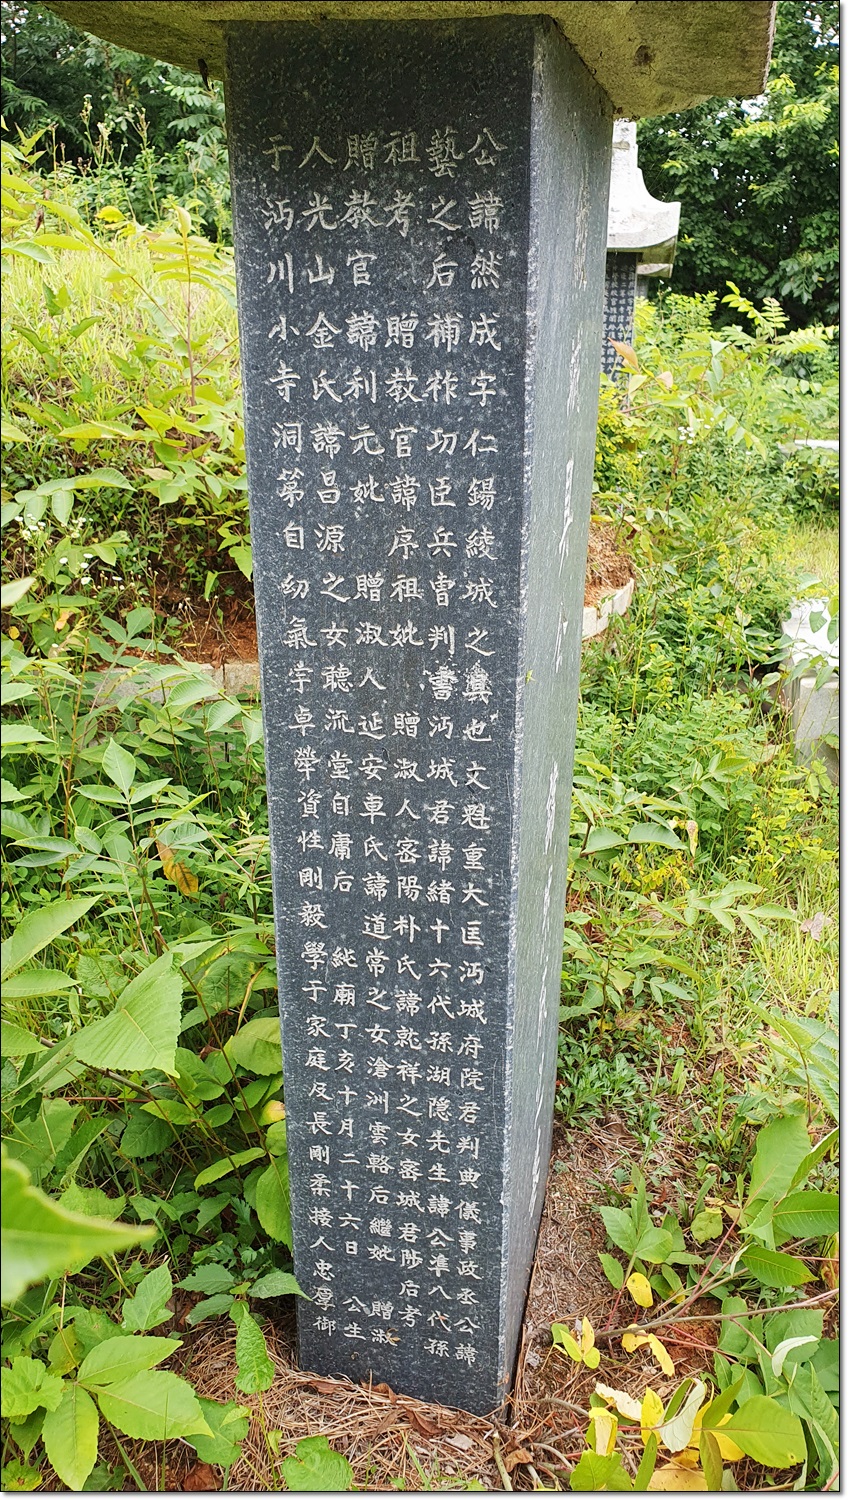 公諱然成字仁錫綾城之具也文魁重大匡沔城府院君判典儀事政丞公諱
藝之后補祚功臣兵曹判書沔城君諱緖十六代孫湖隱先生諱公準八代孫
祖考 贈敎官諱序祖妣 贈淑人密陽朴氏諱乾祥之女密城君陟后考
贈敎官諱利元妣 贈淑人延安車氏諱道常之女滄洲雲輅后繼妣 贈淑
人光山金氏諱昌源之女聽流堂自庸后 純廟丁亥十月二十六日 公生
于沔川小寺洞第自幼氣宇卓犖資性剛毅學于家庭及長剛柔接人忠厚御